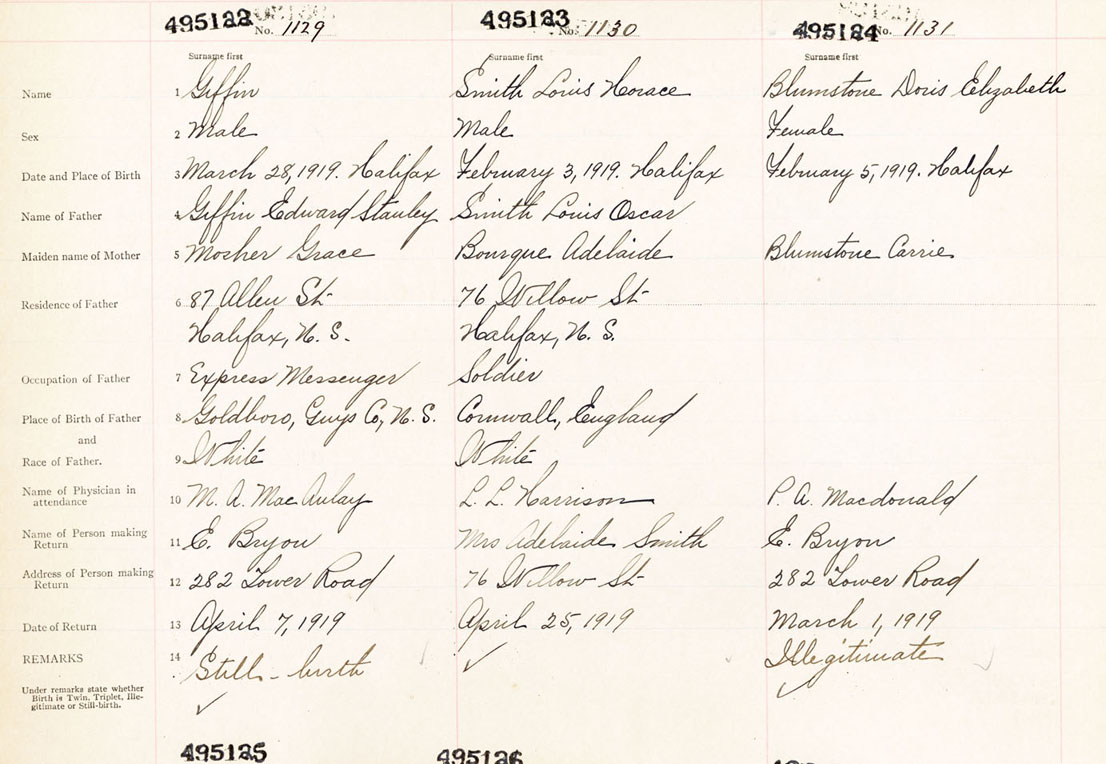 495122 No. 1129 495123 No. 1130 495124 No. 1131
Surname first Surname first Surname first
Name 1 Giffin Smith Louis Horace Blumstone Doris Elizabeth
Sex 2 Male Male Female
Date and Place of Birth 3 March 28, 1919. Halifax February 3, 1919. Halifax February 5, 1919. Halifax
Name of Father 4 Giffin Edward Stanley Smith Louis Oscar
Maiden name of Mother 5 Mosher Grace Bourque Adelaide Blumstone Carrie
Residence of Father 6 87 Allen St- 76 Willow St-
Halifax, N. S. Halifax, N. S.
Occupation of Father 7 Express Messenger Soldier
Place of Birth of Father 8 Goldboro, Guys Co, N. S. Cornwall, England
and
Race of Father. 9 White White
Name of Physician in
attendance 10 M. A. MacAulay L. L. Harrison P. A. Macdonald
Name of Person making
Return 11 E. Bryon Mrs Adelaide Smith E. Bryon
Address of Person making
Return 12 282 Tower Road 76 Willow St- 282 Tower Road
Date of Return 13 April 7, 1919 April 25, 1919 March 1, 1919
REMARKS 14 Still-birth Illegitimate
Under remarks state whether
Birth is Twin, Triplet, Ille-
gitimate or Still-birth.
495125 495126